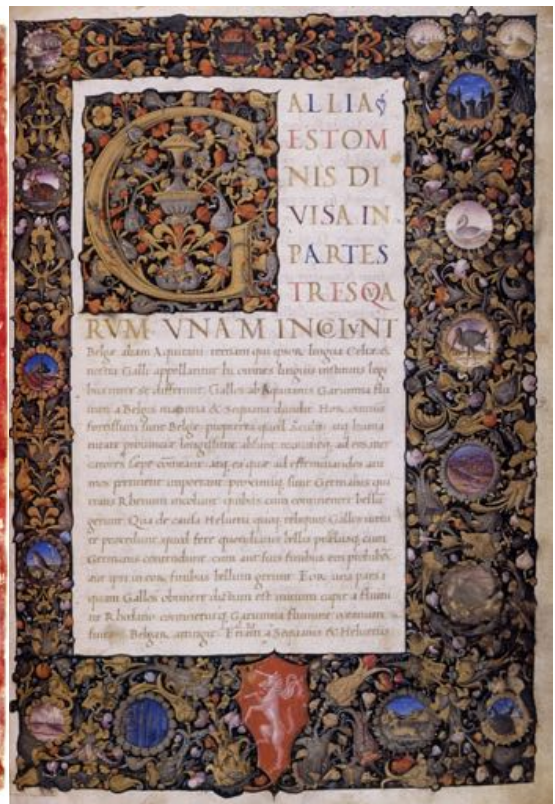 GALLIA
EST OM
NIS DI
VISA IN
PARTES
TRES QVA
RVM VNAM INCOLVNT
Belgę aliam Aquitani tertiam qui lingua Celtæ
nostra Galli appellantur hi omnes lingua institutis legi
bus inter se differunt Gallos ab Aquitanis Garumna flu
men a Belgis & Sequana diuidit Horum omnium
fortissimi sunt Belgę a cultu atq, huma
nitate prouincię longissime absunt ad eos mer
catores sepe comeant atq, ea quæ ad effeminandos ani
mos pertinent important proximiq, sunt Germanis qui
trans Rhenum incolunt quibus cum continenter bellum
gerunt Qua de causa Heluetii quoq, reliquos Gallos uirtu
te precedunt quod fere quottidianis bellis preliisq, cum
Germanis contendunt cum aut suis finibus eos prohibent
aut ipsi in eorum finibus bellum gerunt Eorum una pars
quam Gallos obtinere dictum est initium capit a flumi
ne Rhodano continetur Garumna flumine oceano
finibus Belgarum attingit Etiam a Sequanis & Heluetiis